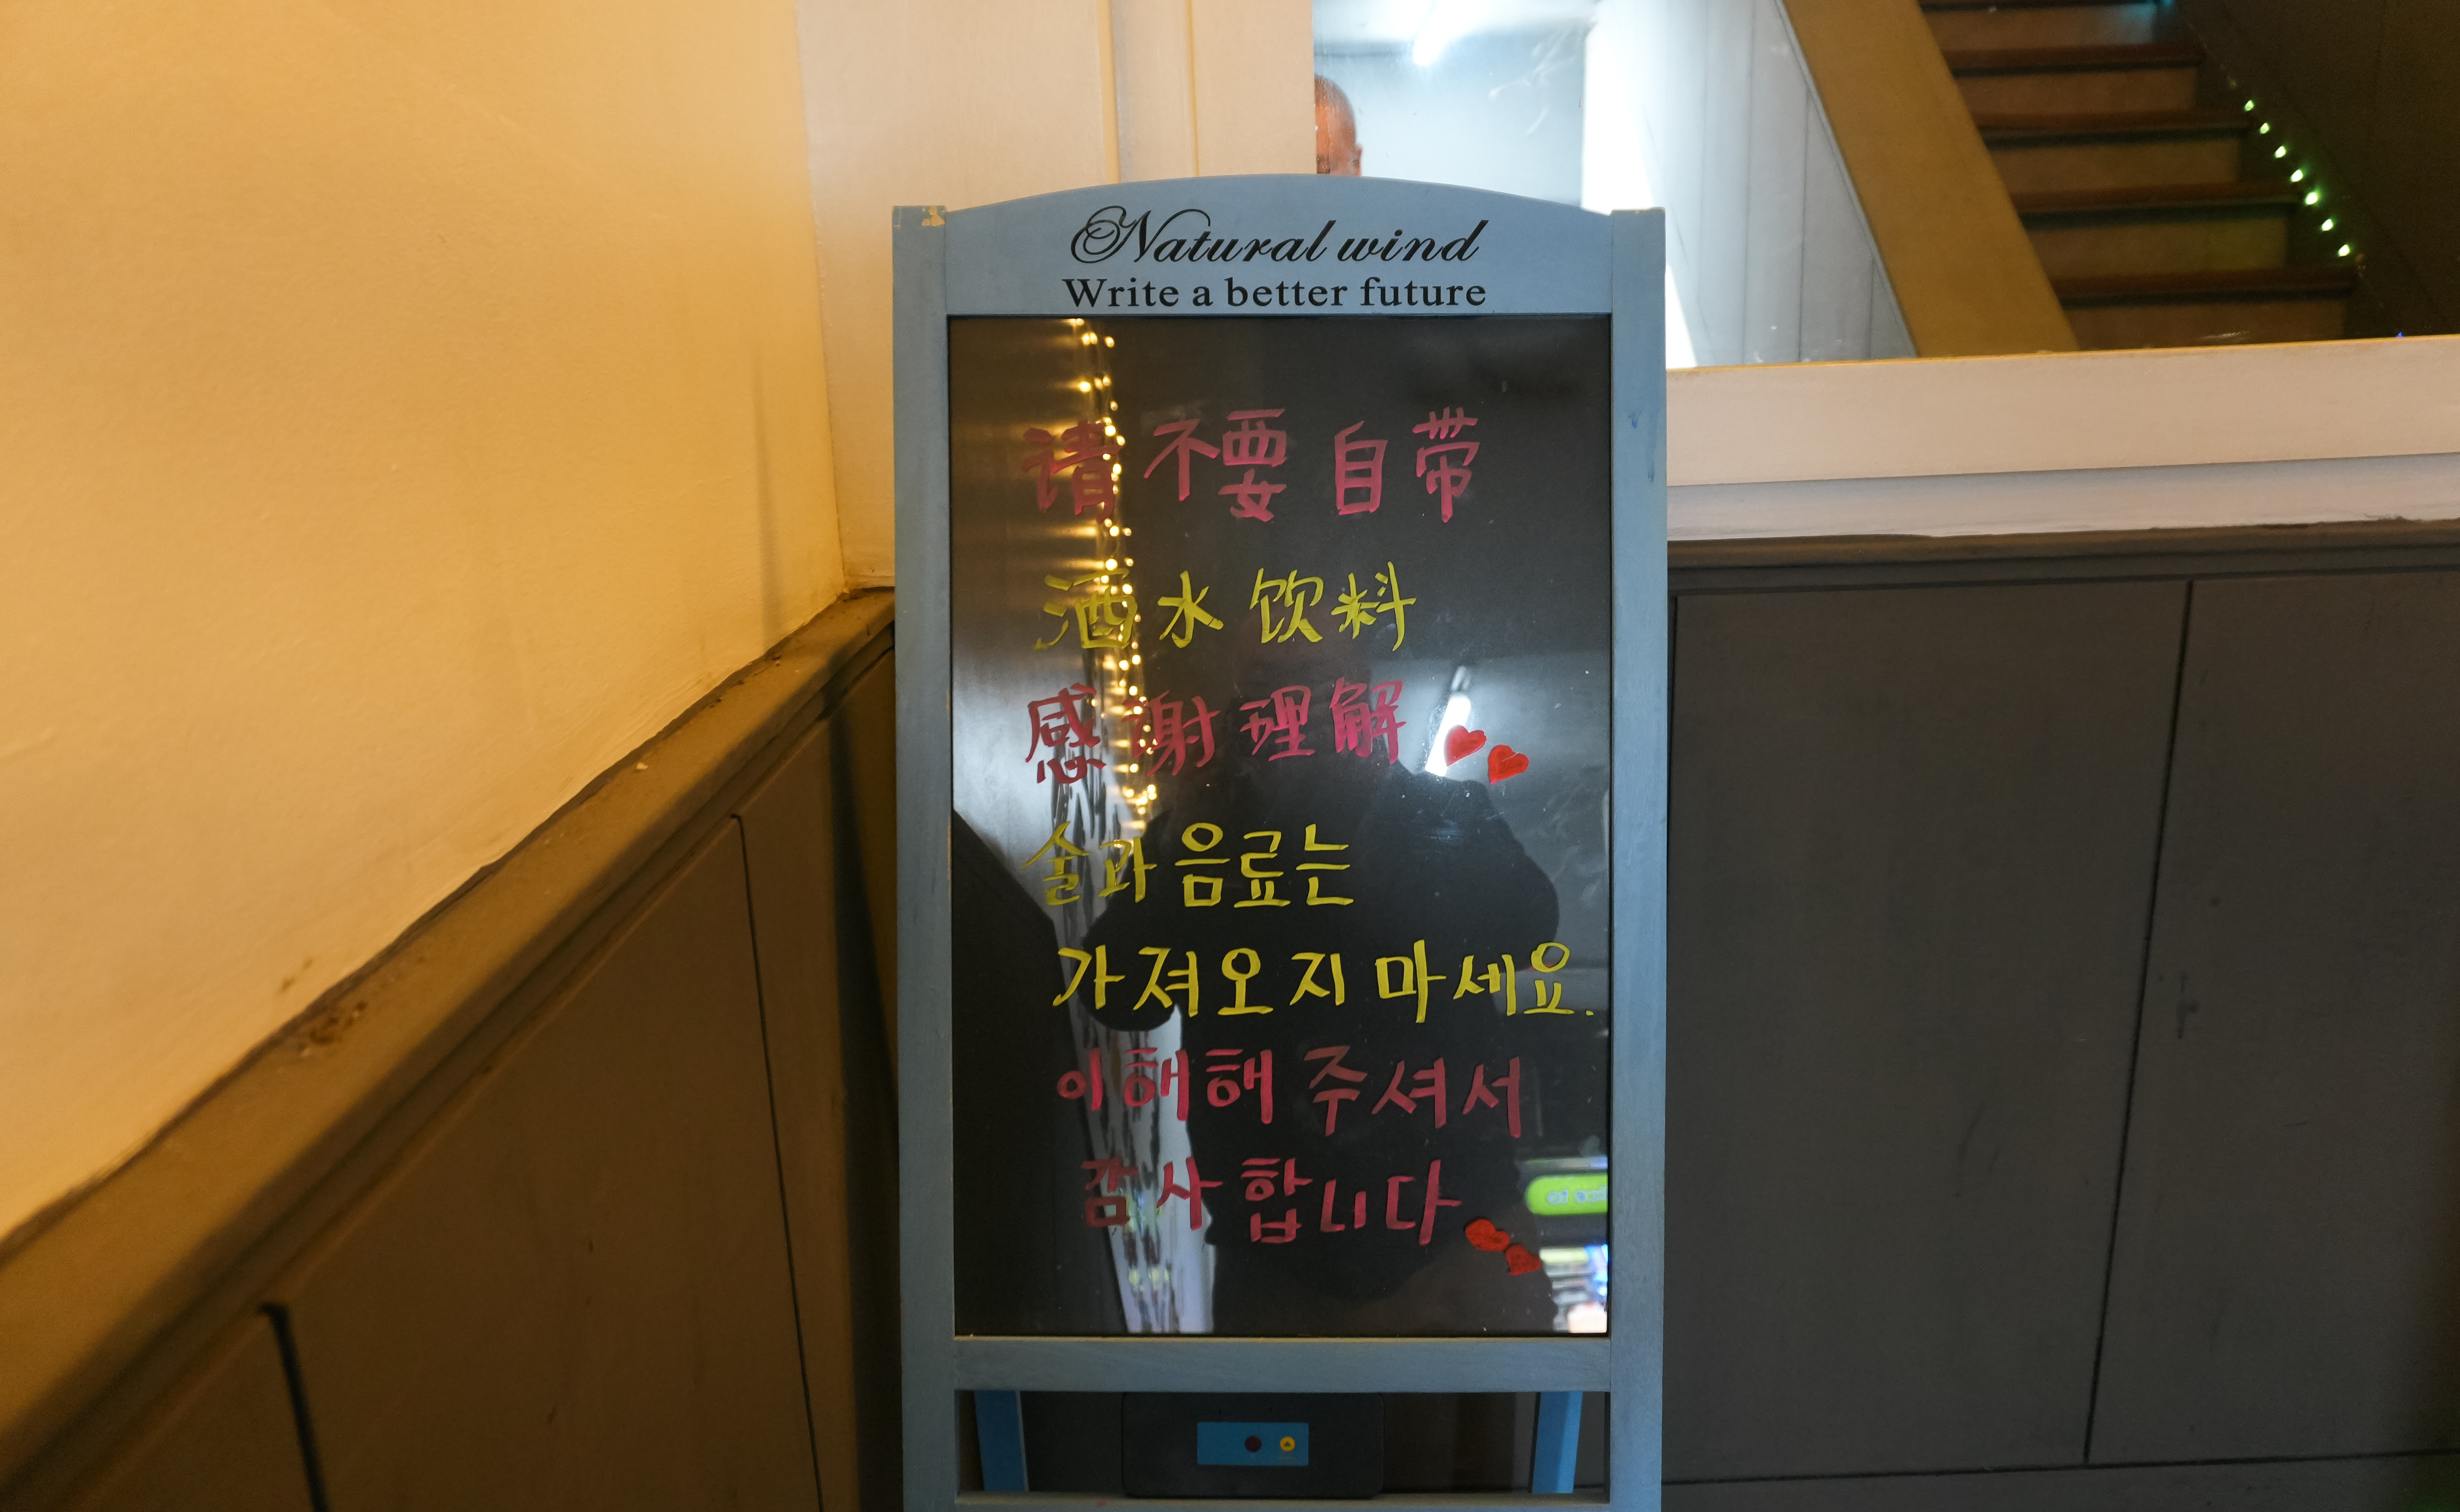 Natural wind
Write a better future
请不要自带
酒水饮料
感谢理解
술과음료는
가져오지 마세요.
이해해 주셔서
감사합니다